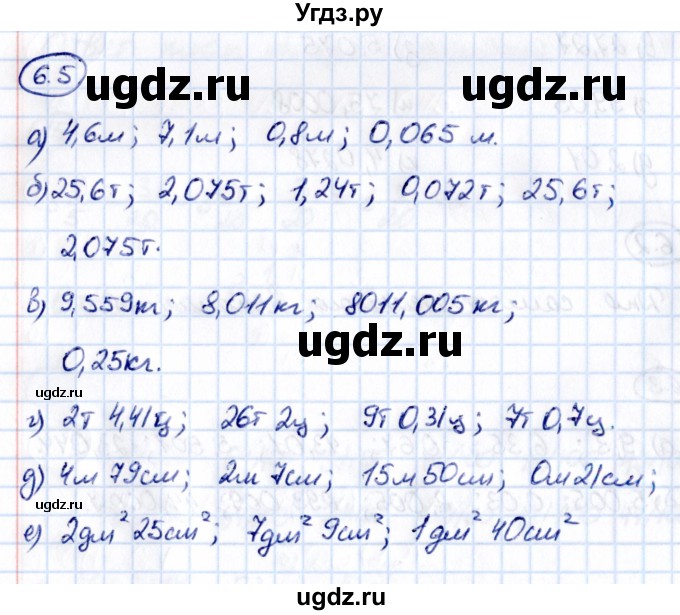 Угдз.ру
6.5
ugdz.ru ugdz.ru
а) 4,6м; 7,1м; 0,8м; 0,065 м.
б) 25,6т; 2,075т; 1,24т; 0,072т; 25,6т;
2,075т.
ugdz.ru
в) 9,559кг; 8,011кг; 8011,005кг;
ugdz.ru
0,25кг.
ugdz.ru
г) 2т 4,41ц; 26т 2ц; 9т 0,31ц; 7т 0,7ц.
д) 4м 79см; 2м 7см; 15м 50см; 0м 21см;
е) 2дм² 25см²; 7дм² 9см²; 1дм² 40см²
ugdz.ru ugdz.ru